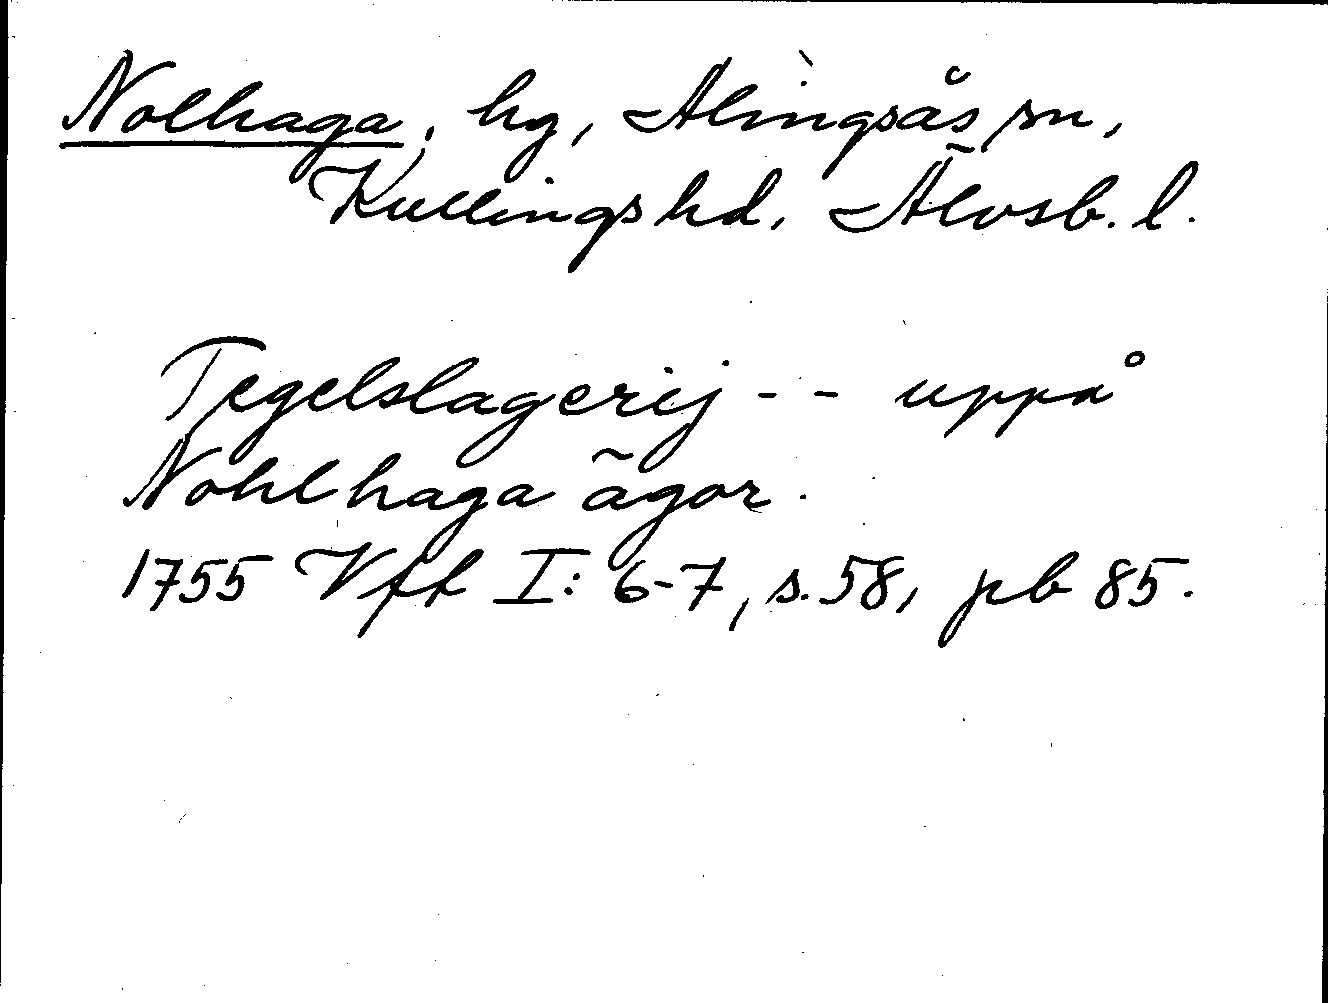 Nolhaga, hg, Alingsås sn,
Kullings hd, Älvsb. l.
Tegelslagerij - - uppå
Nohlhaga ägor.
1755 Vft I: 6-7, s. 58, pb 85.